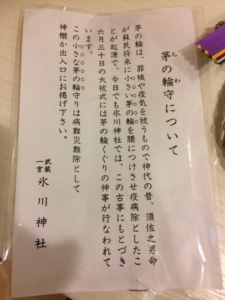 茅の輪守について
ちわ
茅の輪は、罪穢や疫気を祓うもので神代の昔、須佐之男命
が蘇民将来に小さい茅の輪を腰につけさせ疫病除としたこ
とが起源で、今日でも氷川神社では、この古事にもとづき
六月三十日の大祓式には茅の輪くぐりの神事が行なわれて
います。
この小さな茅の輪守りは病難災難除として
神棚か出入口にお掲げ下さい。
武蔵
一宮
氷川神社